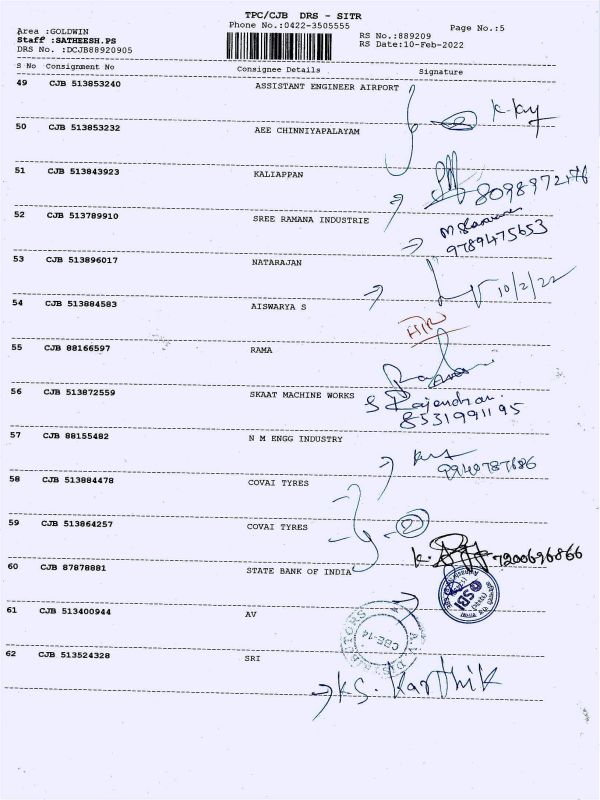 TPC/CJB DRS - SITR
Area :GOLDWIN Phone No.:0422-3505555 Page No.:5
Staff :SATHEESH.PS RS No.:889209
DRS No. :DCJB88920905 RS Date:10-Feb-2022
S No Consignment No Consignee Details Signature
49 CJB 513853240 ASSISTANT ENGINEER AIRPORT
50 CJB 513853232 AEE CHINNIYAPALAYAM
51 CJB 513843923 KALIAPPAN
52 CJB 513789910 SREE RAMANA INDUSTRIE
9789475653
53 CJB 513896017 NATARAJAN
10/2/22
54 CJB 513884583 AISWARYA S
55 CJB 88166597 RAMA
56 CJB 513872559 SKAAT MACHINE WORKS
S Rajendran.
8531991195
57 CJB 88155482 N M ENGG INDUSTRY
58 CJB 513884478 COVAI TYRES
59 CJB 513864257 COVAI TYRES
2
7200696866
60 CJB 87878881 STATE BANK OF INDIA
SBI
61 CJB 513400944 AV
CBE-14
62 CJB 513524328 SRI
K.S. Karthik